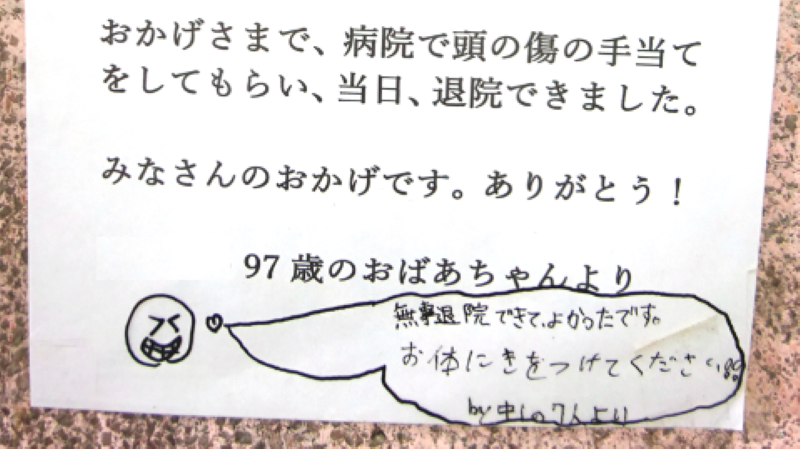 おかげさまで、病院で頭の傷の手当て
をしてもらい、当日、退院できました。
みなさんのおかげです。ありがとう！
97歳のおばあちゃんより
無事退院できて、よかったです。
お体にきをつけてください
by 中1の7人より